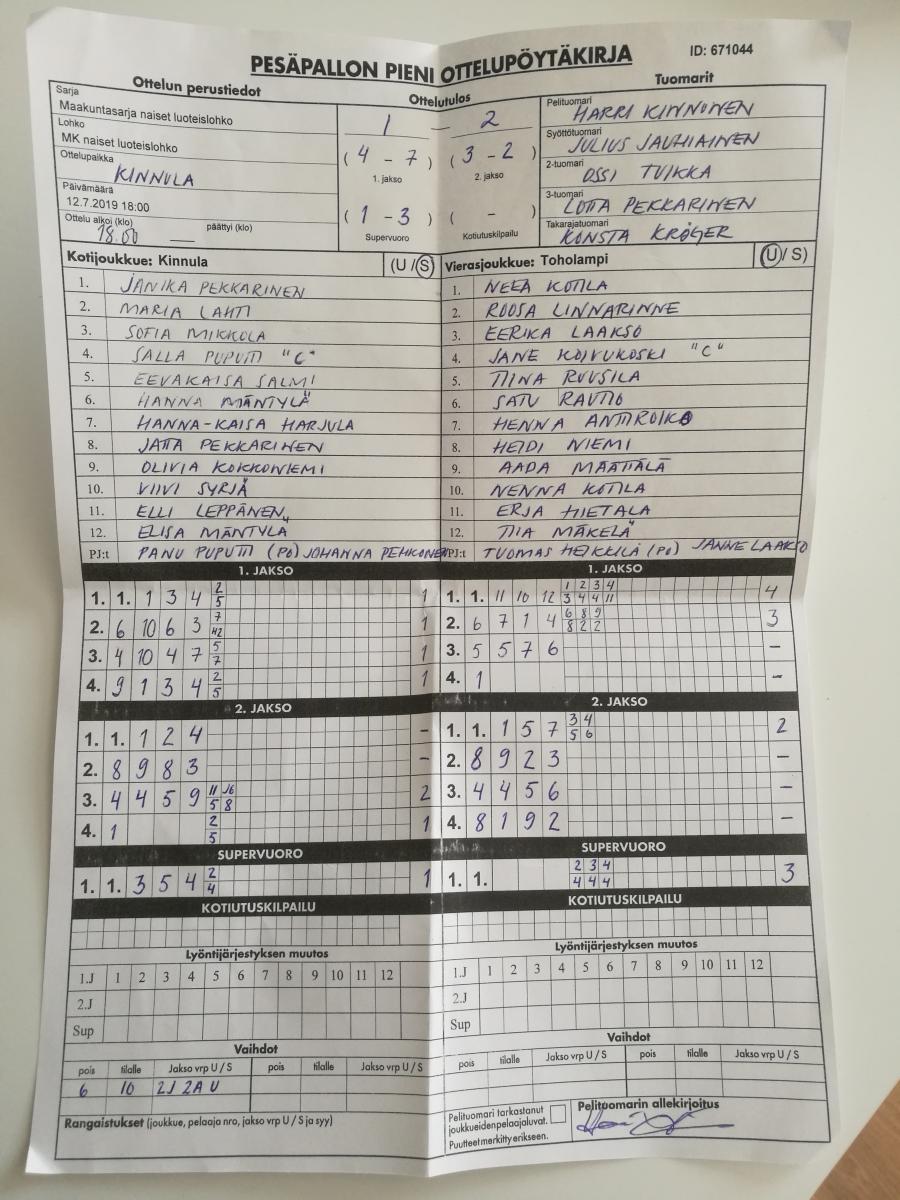 PESÄPALLON PIENI OTTELUPÖYTÄKIRJA
ID: 671044
Ottelun perustiedot
Ottelutulos
Tuomarit
Sarja
Maakuntasarja naiset luoteislohko
Lohko
MK naiset luoteislohko
Ottelupaikka
KINNULA
Päivämäärä
12.7.2019 18:00
Ottelu alkoi (klo) päättyi (klo)
18.00 —
1 — 2
( 4 - 7 ) ( 3 - 2 )
1. jakso 2. jakso
( 1 - 3 ) ( - )
Supervuoro Kotiutuskilpailu
Pelituomari
HARRI KINNUNEN
Syöttötuomari
JULIUS JAUHIAINEN
2-tuomari
OSSI TUIKKA
3-tuomari
LOTTA PEKKARINEN
Takarajatuomari
KONSTA KRÖGER
Kotijoukkue: Kinnula (U / S)
1. JANIKA PEKKARINEN
2. MARIA LAHTI
3. SOFIA MIKKOLA
4. SALLA PUPUTTI "C"
5. EEVAKAISA SALMI
6. HANNA MÄNTYLÄ
7. HANNA-KAISA HARJULA
8. JATTA PEKKARINEN
9. OLIVIA KOKKONIEMI
10. VIIVI SYRJÄ
11. ELLI LEPPÄNEN
12. ELISA MÄNTYLÄ
PJ:t PANU PUPUTTI (PO) JOHANNA PEHKONEN
Vierasjoukkue: Toholampi (U / S)
1. NEEA KOTILA
2. ROOSA LINNARINNE
3. EERIKA LAAKSO
4. JANE KOIVUKOSKI "C"
5. TIINA RUUSILA
6. SATU RAUTIO
7. HENNA ANTTIROIKO
8. HEIDI NIEMI
9. AADA MÄÄTTÄLÄ
10. NENNA KOTILA
11. ERJA HIETALA
12. TIIA MÄKELÄ
PJ:t TUOMAS HEIKKILÄ (PO) JANNE LAAKSO
1. JAKSO
1. 1. 1 3 4 2/5 1
2. 6 10 6 3 7/12 1
3. 4 10 4 7 5/7 1
4. 9 1 3 4 2/5 1
2. JAKSO
1. 1. 1 2 4 -
2. 8 9 8 3 -
3. 4 4 5 9 11/5 16/8 2
4. 1 2/5 1
SUPERVUORO
1. 1. 3 5 4 2/4 1
KOTIUTUSKILPAILU
1. JAKSO
1. 1. 11 10 12 1/3 2/4 3/4 4/11 4
2. 6 7 1 4 6/8 8/2 9/2 3
3. 5 5 7 6 -
4. 1 -
2. JAKSO
1. 1. 1 5 7 3/5 4/6 2
2. 8 9 2 3 -
3. 4 4 5 6 -
4. 8 1 9 2 -
SUPERVUORO
1. 1. 2/4 3/4 4/4 3
KOTIUTUSKILPAILU
Lyöntijärjestyksen muutos
1.J 1 2 3 4 5 6 7 8 9 10 11 12
2.J
Sup
Vaihdot
pois tilalle Jakso vrp U / S pois tilalle Jakso vrp U / S
6 10 2J 2A U
Rangaistukset (joukkue, pelaaja nro, jakso vrp U / S ja syy)
Lyöntijärjestyksen muutos
1.J 1 2 3 4 5 6 7 8 9 10 11 12
2.J
Sup
Vaihdot
pois tilalle Jakso vrp U / S pois tilalle Jakso vrp U / S
Pelituomari tarkastanut
joukkueiden pelaajaluvat.
Puutteet merkitty erikseen.
Pelituomarin allekirjoitus